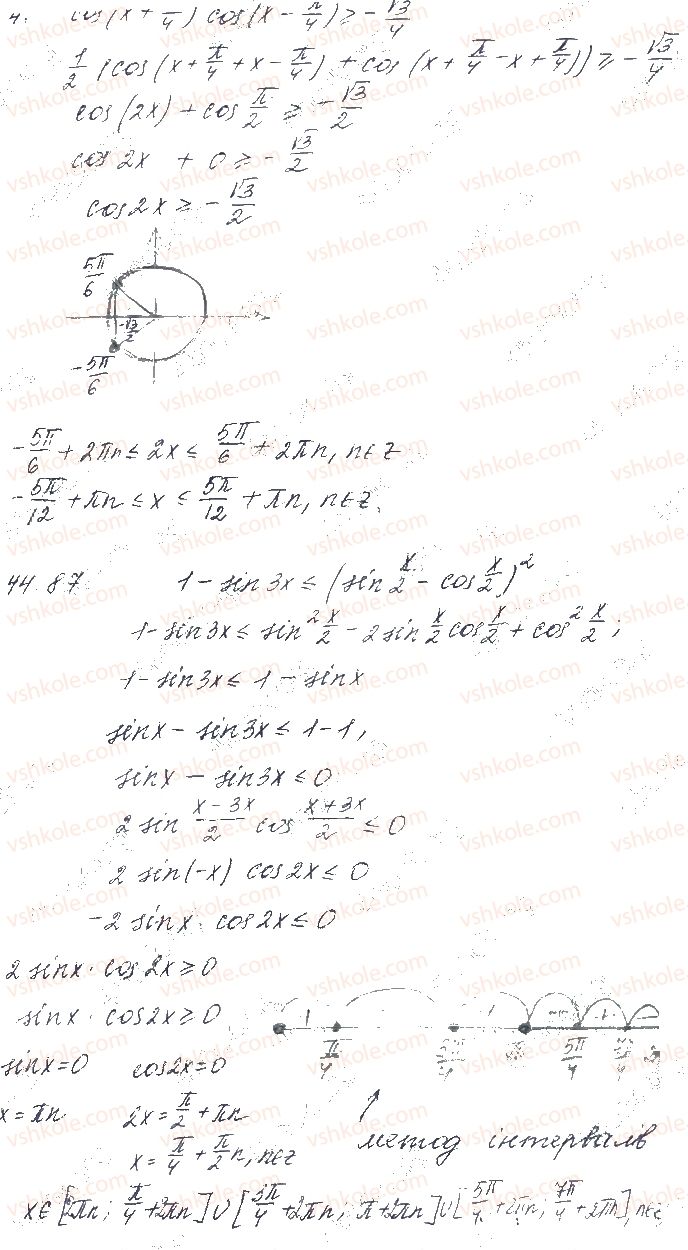 4. cos(x + π/4) cos(x - π/4) ≥ -√3/4
1/2 (cos(x + π/4 + x - π/4) + cos(x + π/4 - x + π/4)) ≥ -√3/4
cos(2x) + cos π/2 ≥ -√3/2
cos 2x + 0 ≥ -√3/2
cos2x ≥ -√3/2
5π/6
-√3/2
-5π/6
-5π/6 + 2πn ≤ 2x ≤ 5π/6 + 2πn, n∈Z
-5π/12 + πn ≤ x ≤ 5π/12 + πn, n∈Z.
44.87. 1 - sin3x ≤ (sin x/2 - cos x/2)²
1 - sin3x ≤ sin² x/2 - 2sin x/2 cos x/2 + cos² x/2;
1 - sin3x ≤ 1 - sinx
sinx - sin3x ≤ 1 - 1,
sinx - sin3x ≤ 0
2 sin (x - 3x)/2 cos (x + 3x)/2 ≤ 0
2 sin(-x) cos2x ≤ 0
-2 sinx · cos2x ≤ 0
2 sinx · cos2x ≥ 0
sinx · cos2x ≥ 0
π/4 5π/4
sinx = 0 cos2x = 0
x = πn 2x = π/2 + πn
x = π/4 + π/2 n, n∈Z
метод інтервалів
x∈[2πn; π/4 + 2πn]∪[3π/4 + 2πn; π + 2πn]∪[5π/4 + 2πn; 7π/4 + 2πn], n∈Z
vshkole.com